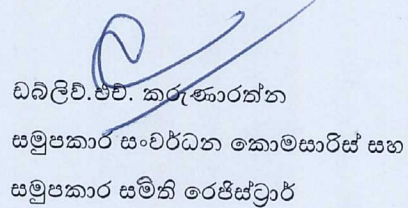 ඩබ්ලිව්.එච්. කරුණාරත්න
සමුපකාර සංවර්ධන කොමසාරිස් සහ
සමුපකාර සමිති රෙජිස්ට්‍රාර්